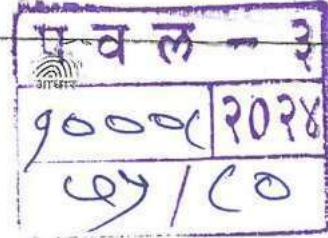 प व ल - ३
आधार
१०००८ २०२४
७५ / ८०